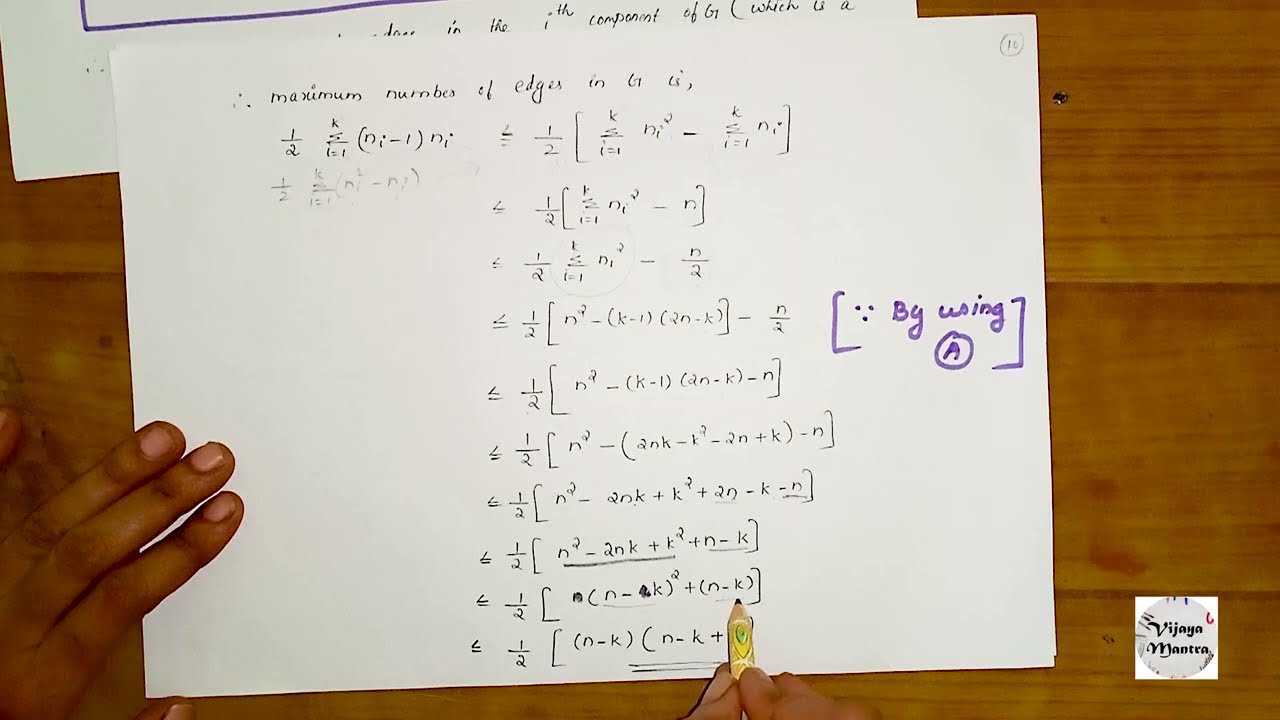 in the iᵗʰ component of G (which is a
10
∴ maximum number of edges in G is,
1/2 Σᵢ₌₁ᵏ (nᵢ-1) nᵢ ≤ 1/2 [ Σᵢ₌₁ᵏ nᵢ² - Σᵢ₌₁ᵏ nᵢ ]
1/2 Σᵢ₌₁ᵏ (nᵢ² - nᵢ)
≤ 1/2 [ Σᵢ₌₁ᵏ nᵢ² - n ]
≤ 1/2 Σᵢ₌₁ᵏ nᵢ² - n/2
≤ 1/2 [ n² - (k-1) (2n-k) ] - n/2 [ ∵ By using
A ]
≤ 1/2 [ n² - (k-1) (2n-k) - n ]
≤ 1/2 [ n² - (2nk - k² - 2n + k) - n ]
≤ 1/2 [ n² - 2nk + k² + 2n - k - n ]
≤ 1/2 [ n² - 2nk + k² + n - k ]
≤ 1/2 [ (n - k)² + (n - k) ]
≤ 1/2 [ (n-k) ( n-k +
Vijaya
Mantra